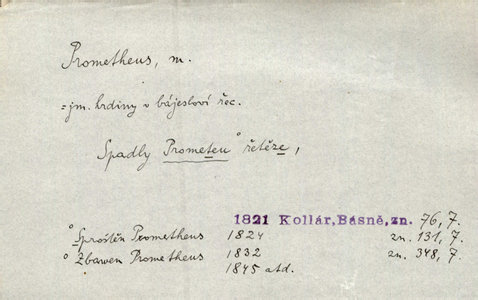 Prometheus, m.
= jm. hrdiny v bájesloví řec.
Spadly Prometeu° řetěze,
1821 Kollár, Básně, zn. 76, 7.
° Sproštěn Prometheus 1824 zn. 131, 7.
° Zbawen Prometheus 1832 zn. 348, 7.
1845 atd.